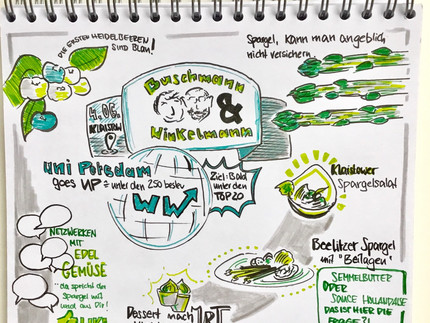 DIE ERSTEN HEIDELBEEREN
SIND BLAU!
Spargel, kann man angeblich
nicht versichern
Buschmann
&
Winkelmann
4.06.
KLAISTOW
Uni Potsdam
goes UP
unter den 250 besten
WWW
Ziel: Bald
unter den
TOP 20
Klaistower
Spargelsalat
NETZWERKEN
MIT
EDEL
GEMÜSE
Beelitzer Spargel
mit "Beilagen"
SEMMELBUTTER
ODER
SAUCE HOLLANDAISE
DAS IST HIER DIE
FRAGE?
Dessert nach